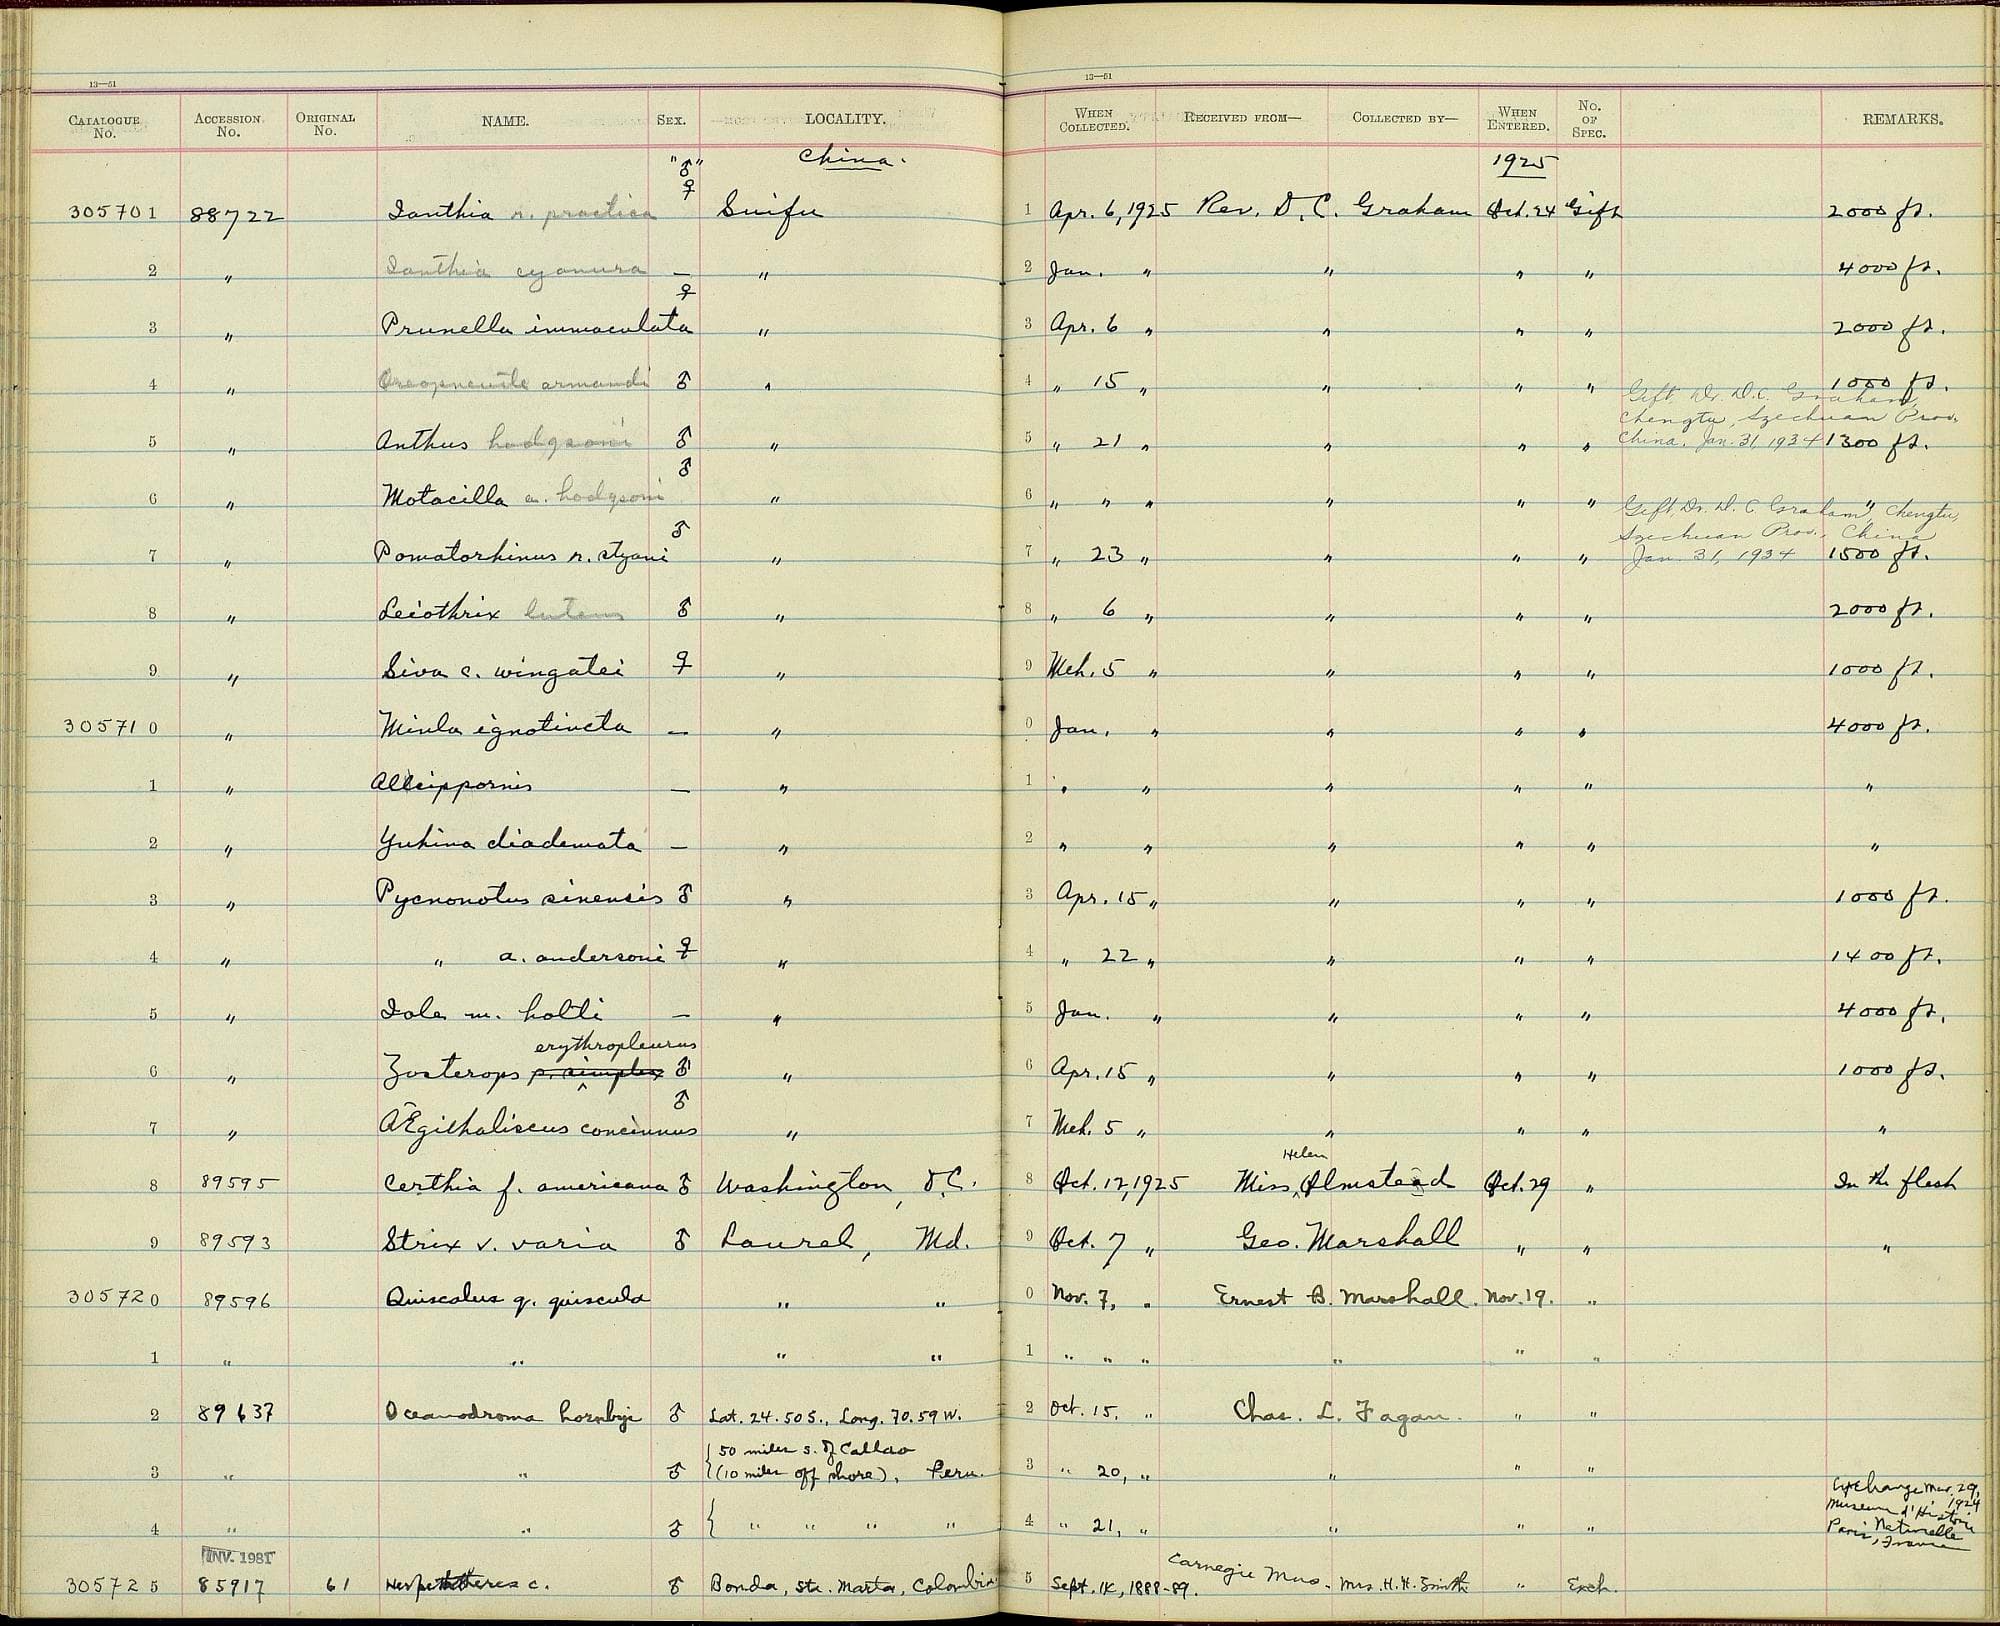 13—51
13—51
CATALOGUE No. ACCESSION No. ORIGINAL No. NAME. SEX. LOCALITY. WHEN COLLECTED. RECEIVED FROM— COLLECTED BY— WHEN ENTERED. No. OF SPEC. REMARKS.
"♂" China. 1925
♀
305701 88722 Ianthia r. practica Suifu 1 Apr. 6, 1925 Rev. D. C. Graham Oct. 24 Gift 2000 ft.
2 " Ianthia cyanura — " 2 Jan. " " " " 4000 ft.
♀
3 " Prunella immaculata " 3 Apr. 6 " " " " 2000 ft.
4 " armandi ♂ " 4 " 15 " " " " 1000 ft.
Gift Dr. D. C. Graham,
Chengtu, Szechuan Prov.
5 " Anthus hodgsoni ♂ " 5 " 21 " " " " China, Jan. 31, 1934 1300 ft.
♂
6 " Motacilla a. hodgsoni " 6 " " " " " " "
Gift Dr. D. C. Graham, Chengtu,
♂ Szechuan Prov., China
7 " Pomatorhinus r. styani " 7 " 23 " " " " Jan. 31, 1934 1500 ft.
8 " Leiothrix lutea ♂ " 8 " 6 " " " " 2000 ft.
9 " Siva c. wingatei ♀ " 9 Mch. 5 " " " " 1000 ft.
305710 " Minla ignotincta — " 0 Jan. " " " " 4000 ft.
1 " Alcippornis — " 1 " " " " " "
2 " Yuhina diademata — " 2 " " " " " "
3 " Pycnonotus sinensis ♂ " 3 Apr. 15 " " " " 1000 ft.
4 " " a. andersoni ♀ " 4 " 22 " " " " 1400 ft.
5 " Iole m. holti — " 5 Jan. " " " " 4000 ft.
erythropleurus
6 " Zosterops p. simplex ♂ " 6 Apr. 15 " " " " 1000 ft.
♂
7 " Ægithaliscus concinnus " 7 Mch. 5 " " " " "
Helen
8 89595 Certhia f. americana ♂ Washington, D.C. 8 Oct. 12, 1925 Miss Olmstead Oct. 29 " In the flesh
9 89593 Strix v. varia ♂ Laurel, Md. 9 Oct. 7 " Geo. Marshall " " "
305720 89596 Quiscalus q. quiscula " " 0 Nov. 7, " Ernest B. Marshall. Nov. 19. "
1 " " " " 1 " " " " " "
2 89637 Oceanodroma hornbyi ♂ Lat. 24.50 S., Long. 70.59 W. 2 Oct. 15, " Chas. L. Fagan. " "
50 miles s. of Callao
3 " " ♂ (10 miles off shore), Peru. 3 " 20, " " " "
Exchange Mar. 29, 1924
Museum d'Histoire
Naturelle
4 " " ♂ " " " " 4 " 21, " " " " Paris, France
INV. 1981
305725 85917 61 c. ♂ Bonda, Sta. Marta, Colombia 5 Sept. 1888-89. Carnegie Mus. Mrs. H. H. Smith " Exch.